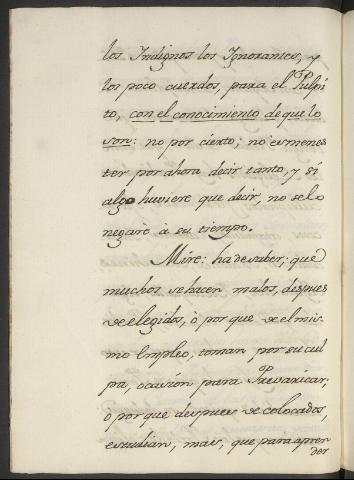 los Indignos los Ignorantes, y
los poco cuerdos, para el Pulpi
to, con el conocimiento de que lo
son: no por cierto; no es menes
ter por ahora decir tanto, y si
algo huviere que decir, no se lo
negarè à su tiempo.
Mire: ha de saber; que
muchos se hacen malos, despues
de elegidos, ò por que de el mis-
mo Empleo, toman por su cul
pa, ocasión para Prevaricar;
ò por que despues de colocados,
estudian, mas, que para apren
der